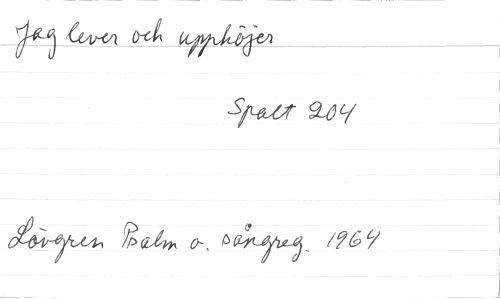 Jag lever och upphöjer
Spalt 204
Lövgren Psalm o. sångreg. 1964